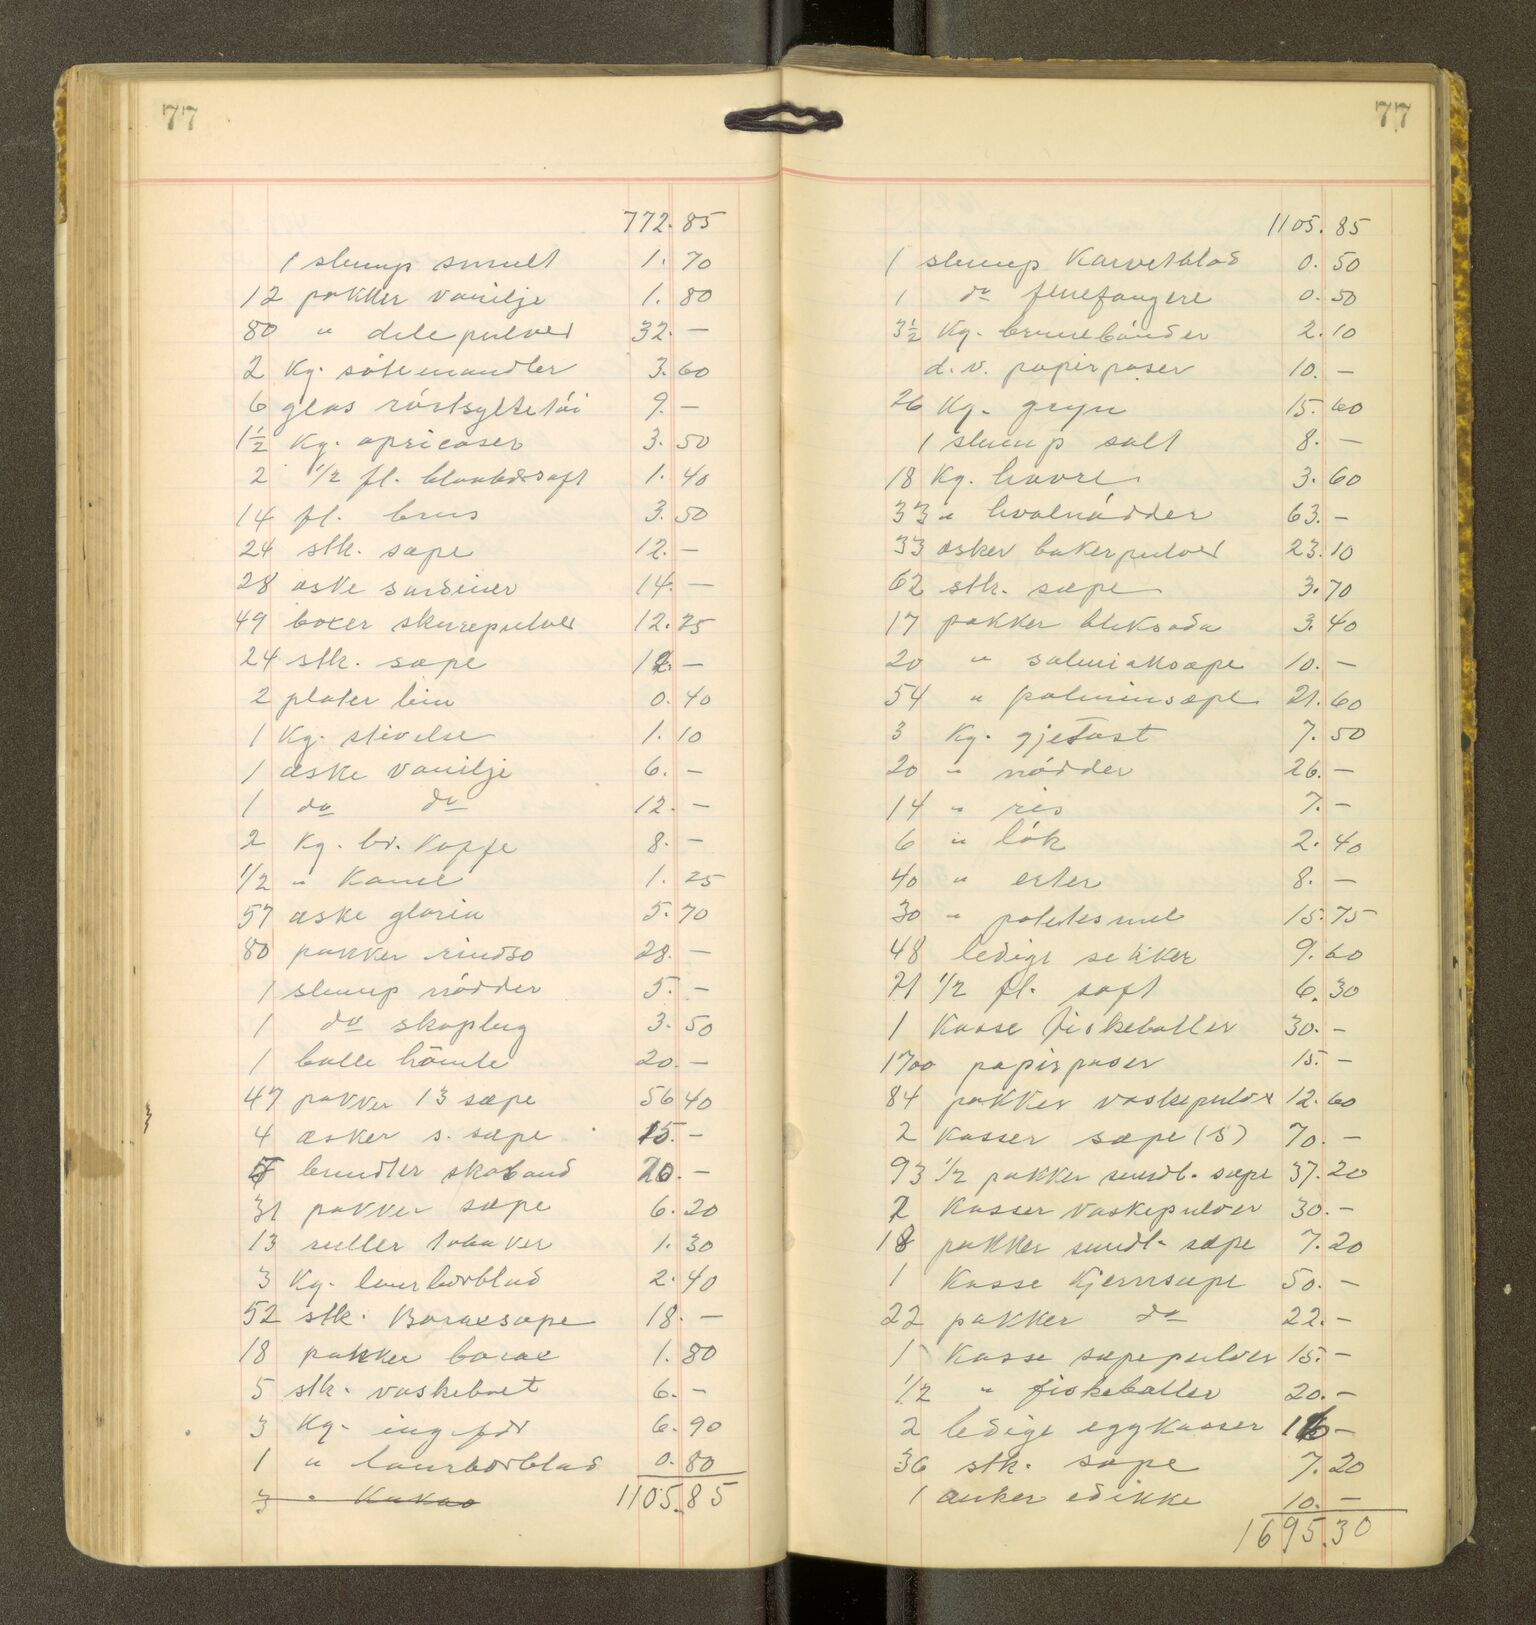 77
772.85
1 slump smult 1.70
12 pakker vanilje 1.80
80 " dilepulver 32.–
2 Kg. sötemandler 3.60
6 glas rörtsyltetöi 9.–
1½ Kg. apricoser 3.50
2 1/2 fl. blaabærsaft 1.40
14 fl. brus 3.50
24 stk. sæpe 12.–
28 æske sardiner 14.–
49 boxer skurepulver 12.25
24 stk. sæpe 12.–
2 plater lim 0.40
1 Kg. stivelse 1.10
1 æske vanilje 6.–
1 do do 12.–
2 Kg. br. Kaffe 8.–
1/2 " Kanel 1.25
57 æske gloria 5.70
80 pakker rindso 28.–
1 slump nödder 5.–
1 do skoplug 3.50
1 balle hömle 20.–
47 pakker 13 sæpe 56.40
4 æsker s. sæpe 15.–
bundter skobaand 20.–
31 pakker sæpe 6.20
13 ruller tobakker 1.30
3 Kg. laurbærblad 2.40
52 stk. Boraxsæpe 18.–
18 pakker borax 1.80
5 stk. vaskebret 6.–
3 Kg. ingefær 6.90
1 " laurbærblad 0.80
3 " Kakao 1105.85
77
1105.85
1 slump Karvetblad 0.50
1 do fluefangere 0.50
3½ Kg. brunebönder 2.10
d.v. papirposer 10.–
26 Kg. gryn 15.60
1 slump salt 8.–
18 Kg. havre 3.60
33 " hvalnödder 63.–
33 æsker bakerpulver 23.10
62 stk. sæpe 3.70
17 pakker bleksoda 3.40
20 " salmiaksæpe 10.–
54 " palminsæpe 21.60
3 Kg. gjetost 7.50
20 " nödder 26.–
14 " ris 7.–
6 " lök 2.40
40 " erter 8.–
30 " potetesmel 15.75
48 ledige sekker 9.60
21 1/2 fl. saft 6.30
1 Kasse fiskeboller 30.–
1700 papirposer 15.–
84 pakker vaskepulver 12.60
2 Kasser sæpe (S) 70.–
93 1/2 pakker sundl. sæpe 37.20
2 Kasser vaskepulver 30.–
18 pakker sundl. sæpe 7.20
1 Kasse Kjernsæpe 50.–
22 pakker do 22.–
1 Kasse sæpepulver 15.–
1/2 " fiskeboller 20.–
2 ledige eggkasser
36 stk. sæpe 7.20
1 anker edikke 10.–
1695.30